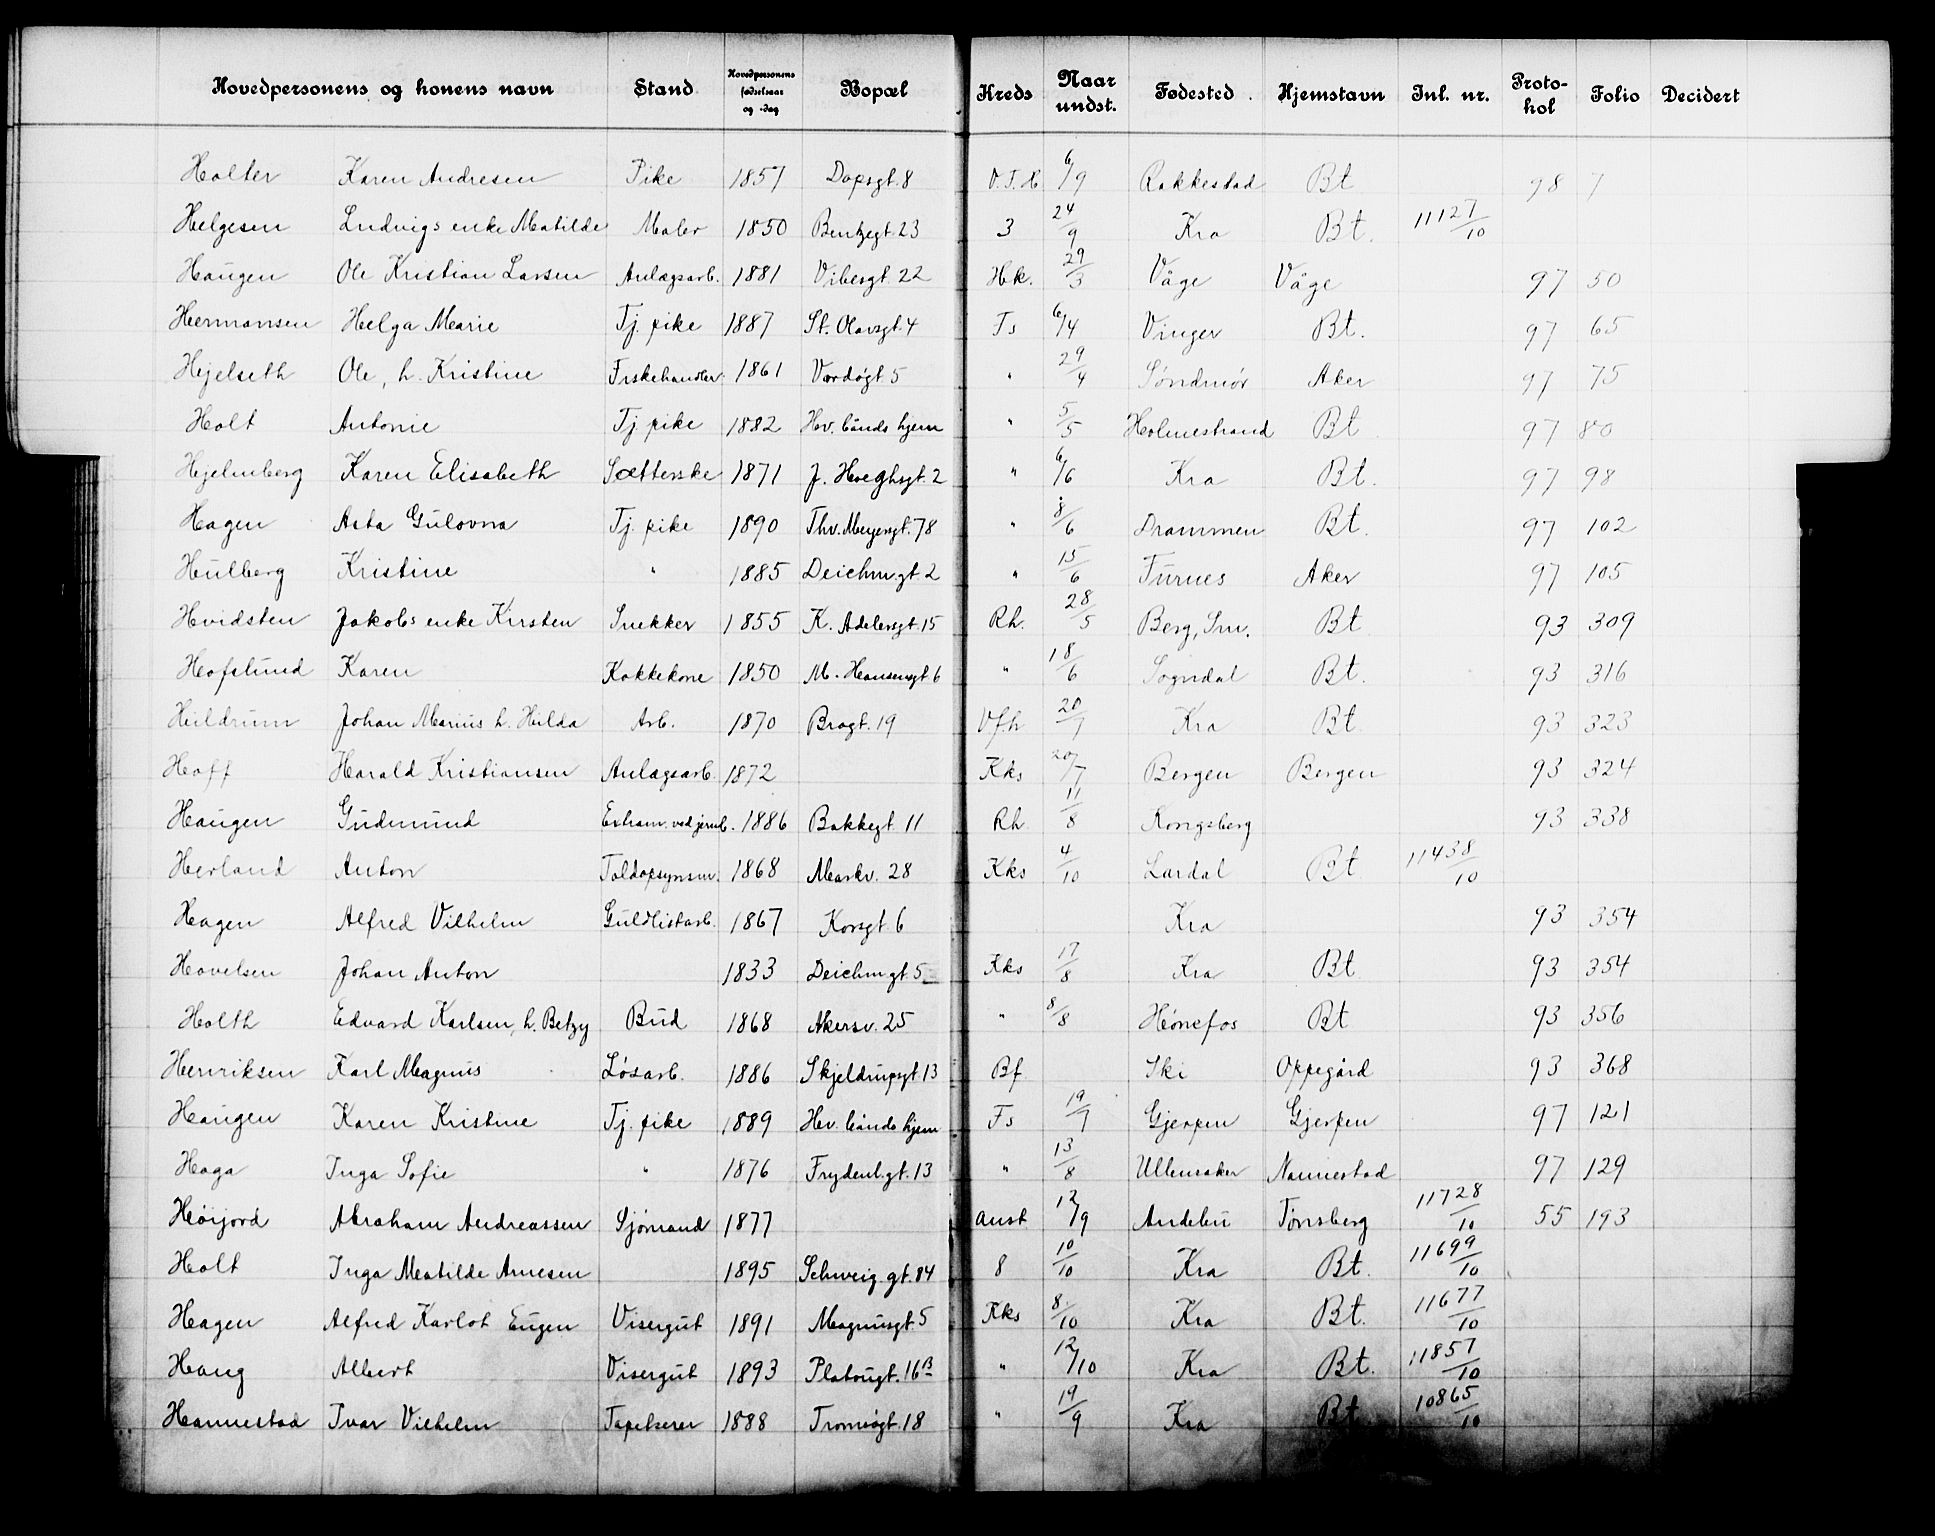 Hovedpersonens og konens navn Stand Hovedpersonens fødselsaar og -dag Bopæl Kreds Naar undst. Fødested. Hjemstavn Inl. nr. Proto-kol Folio Decidert
Holter Karen Andresen Pike 1857 Dopsgt. 8 V.T.H 6/9 Rakkestad Bt 98 7
Helgesen Ludvigs enke Matilde Maler 1850 Bentzegt. 23 3 24/9 Kra Bt. 11127/10
Haugen Ole Kristian Larsen Anlægsarb. 1881 Vibesgt. 22 Hk. 29/3 Våge Våge 97 50
Hermansen Helga Marie Tj. pike 1887 St. Olavsgt. 4 Fs 6/4 Vinger Bt. 97 65
Hejelseth Ole, h. Kristine Fiskehandler 1861 Vardøgt. 5 " 29/4 Søndmør Aker 97 75
Holt Antonie Tj. pike 1882 Hv. bånds hjem " 5/5 Holmestrand Bt 97 80
Hjelmberg Karen Elisabeth Sætterske 1871 J. Høeghsgt. 2 " 6/6 Kra Bt. 97 98
Hagen Asta Gulovna Tj. pike 1890 Thv. Meyersgt. 78 " 8/6 Drammen Bt. 97 102
Hulberg Kristine " 1885 Deichm.gt. 2 " 15/6 Furnes Aker 97 105
Hvidsten Jakobs enke Kirsten Snekker 1855 K. Adelersgt. 15 Rh. 28/5 Berg, Sm. Bt 93 309
Hofslund Karen Kokkekone 1850 M. Hansensgt 6 " 18/6 Sogndal Bt. 93 316
Huldrum Johan Marius h. Hulda Arb. 1870 Bragt. 19 Vfh 20/7 Kra Bt. 93 323
Hoff Harald Kristiansen Anlægsarb. 1872 Kks 20/7 Bergen Bergen 93 324
Haugen Gudmund Extram. ved jernb. 1886 Bakkegt. 11 Rh. 11/8 Kongsberg 93 338
Herland Anton Toldopsynsm. 1868 Markv. 28 Kks 4/10 Lardal Bt 11438/10
Hagen Alfred Vilhelm Guldlistarb. 1867 Korsgt. 6 Kra 93 354
Hovelsen Johan Anton 1833 Deichm.gt. 5 Kks 17/8 Kra Bt 93 354
Holth Edvard Karlsen, h. Betzy Bud 1868 Akersv. 25 " 8/8 Hønefos Bt 93 356
Henriksen Karl Magnus Løsarb. 1886 Skjeldrupsgt. 13 Bf. Ski Oppegård 93 368
Haugen Karen Kristine Tj. pike 1889 Hv. bånds hjem Fs 19/7 Gjerpen Gjerpen 97 121
Haga Inga Sofie " 1876 Frydenl.gt. 13 " 13/8 Ullensaker Nannestad 97 129
Høijord Abraham Andreassen Sjømand 1877 Aust 12/9 Andebu Tønsberg 11728/10 55 193
Holt Inga Matilde Arnesen 1895 Schweig.gt. 84 8 10/10 Kra Bt. 11699/10
Hagen Alfred Karlot Eugen Visergut 1891 Magnusgt. 5 Kks 8/10 Kra Bt. 11677/10
Haug Albert Visergut 1893 Platougt. 16B " 12/10 Kra Bt. 11857/10
Hannestad Ivar Vilhelm Tapetserer 1888 Tromsøgt. 18 " 19/9 Kra Bt. 10865/10